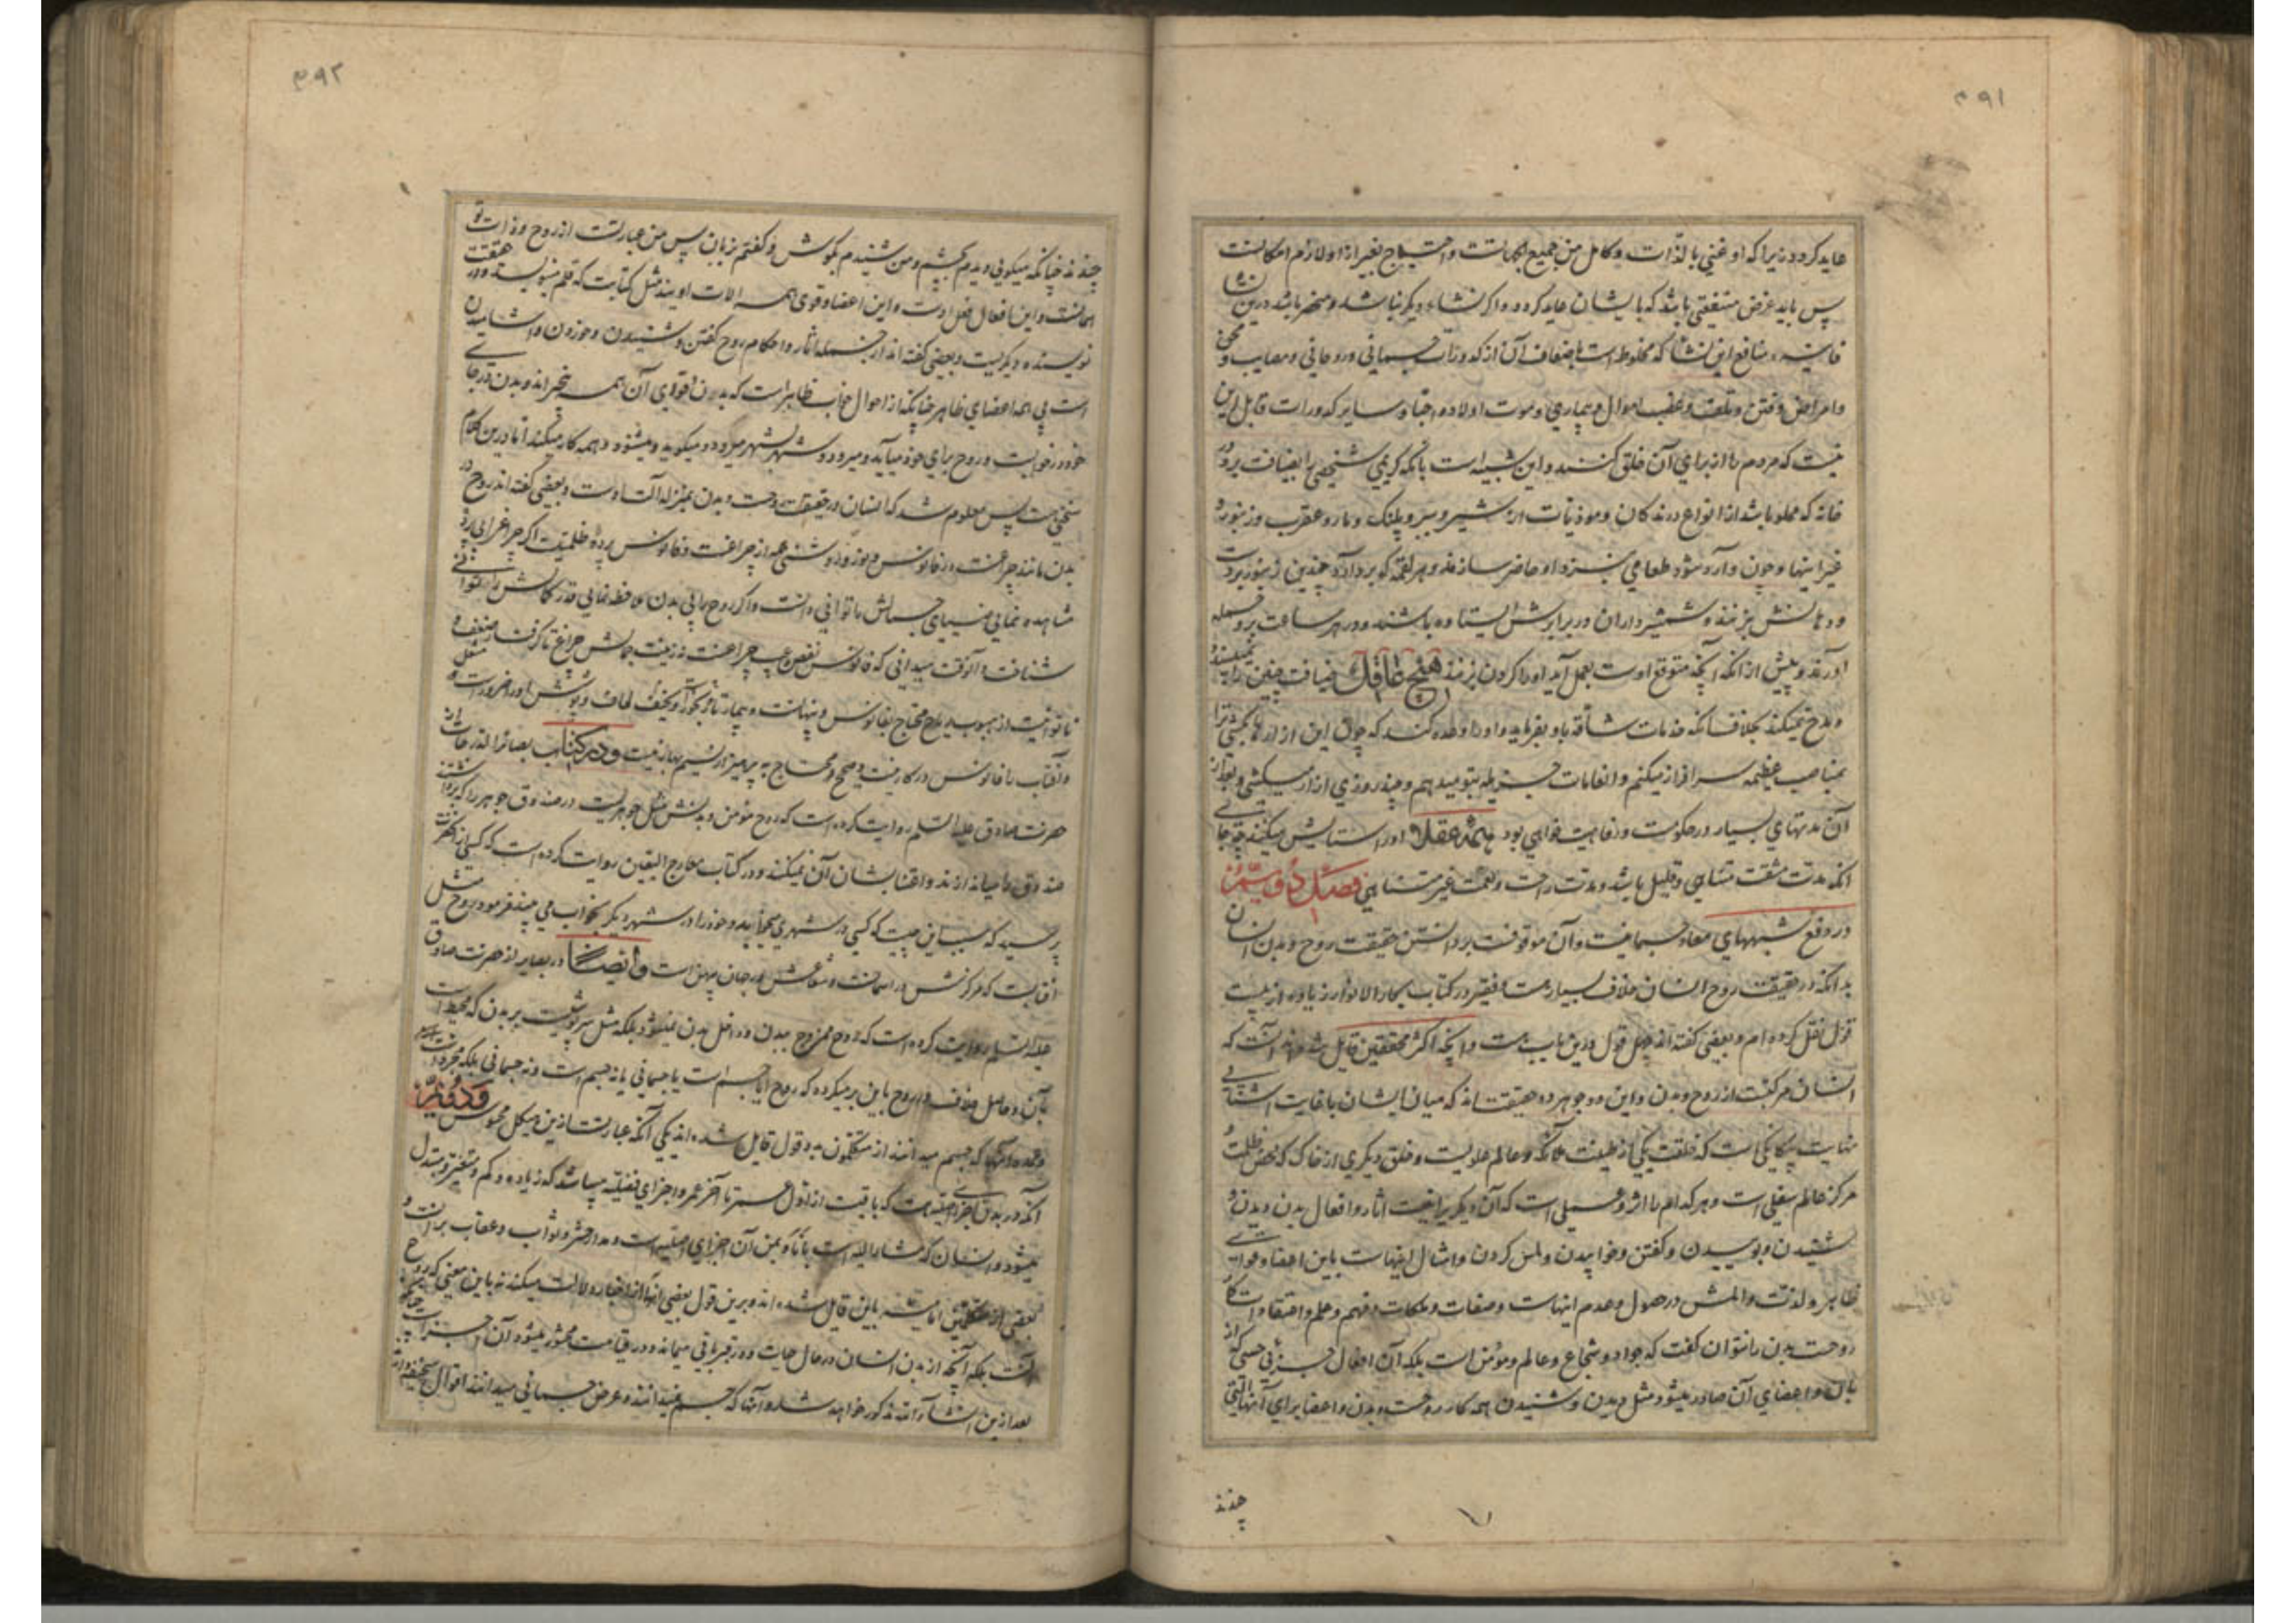 ۳۹۱
عاید کردد زیرا که او غنی بالذات و کامل من جمیع الجهاتست و احتیاج بغیر از لوازم امکانست
پس باید غرض منفعتی باشد که بایشان عاید کردد و اکر نشاء دیکر نباشد و منحصر باشد درین نشا
فانیه منافع این نشا که مخلوط است باضعاف آن از کدورات جسمانی و روحانی و مصایب و محن
و امراض و فتن و تلف و غصب اموال و بیماری و موت اولاد و احبا و سایر کدورات قابل این
نیست که مردم را از برای آن خلق کنند و این شبیه است بآنکه کریمی شخصی را بضیافت برد در
خانه که مملو باشد از انواع درندکان و موذیات از شیر و ببر و پلنک و مار و عقرب و زنبور و
غیر اینها و چون وارد شود طعامی نزد او حاضر سازند و هر لقمه که بردارد چندین زنبور بر دست
و دهانش بزنند و شمشیرداران در برابرش ایستاده باشند و در هر ساعت برو حمله
آورند و پیش از آنکه آنچه متوقع اوست بعمل آید او را کردن بزنند هیچ عاقل ضیافت چنین را نمی‌پسندد
و مدح نمیکند بخلاف آنکه خدمات شاقه باو بفرماید و او را وعده کند که چون این آزارها بکشی ترا
بمناصب عظیمه سرافراز میکنم و انعامات جزیله بتو میدهم و چند روزی آزار میکشی و بعد از
آن مدتهای بسیار در حکومت و رفاهیت خواهی بود همه عقلا او را ستایش میکنند چه جای
آنکه مدت مشقت متناهی و قلیل باشد و مدت راحت و نعمت غیر متناهی فصل دویم
در دفع شبهه‌های معاد جسمانیست و آن موقوفست بر دانستن حقیقت روح و بدن انسان
بدانکه در حقیقت روح انسان خلاف بسیار هست فقیر در کتاب بحار الانوار زیاده از بیست
قول نقل کرده‌ام و بعضی کفته‌اند چهل قول درین باب هست و آنچه اکثر محققین قایل شده‌اند آنست که
انسان مرکبست از روح و بدن و این دو جوهر دو حقیقت‌اند که میان ایشان با غایت آشنایی
نهایت بیکانکی است که خلقت یکی از طینت ملائکه و عالم علویست و خلق دیکری از خاک که محض ظلمت و
مرکز عالم سفلی است و هر کدام را اثر و عملی است که آن دیکریرا نیست آثار و افعال بدن دیدن و
شنیدن و بوییدن و کفتن و خوابیدن و لمس کردن و امثال اینهاست باین اعضا و قوای
ظاهر و لذت و المش در حصول و عدم اینهاست و صفات و ملکات و فهم و علم و اعتقادات کار
روحست بدن را نتوان کفت که جواد و شجاع و عالم و مؤمن است بلکه آن افعال جزئی حسی که از
بدن و اعضای آن صادر میشود مثل دیدن و شنیدن همه کار روحست و بدن و اعضا برای آنها آلتی
چندند
۳۹۲
چندند چنانکه میکویی دیدم بچشم و من شنیدم بکوش و کفتم بزبان پس من عبارتست از روح و ذات تو
همانست و این افعال فعل اوست و این اعضا و قوی همه آلات اویند مثل کتابت که قلم مینویسد و در حقیقت
نویسنده دیکریست و بعضی کفته‌اند از جمله آثار و احکام روح کفتن و شنیدن و خوردن و آشامیدن
است بی این اعضای ظاهر چنانکه از احوال خواب ظاهر است که بدن و قوای آن همه بیخبراند و بدن در جای
خود در خوابست و روح برای خود میآید و میرود و شهر بشهر میکردد و میکوید و میشنود و همه کار میکند اما درین کلام
سخن هست پس معلوم شد که انسان در حقیقت روحست و بدن بمنزله آلت اوست و بعضی کفته‌اند روح در
بدن مانند چراغست در فانوس و نور و روشنی همه از چراغست و فانوس پرده ظلمتست اکر چراغ را بی پرده
مشاهده نمایی ضیای جمالش را توانی دانست و اکر روح را بی بدن ملاحظه نمایی قدر کمالش را توانی
شناخت و آنوقت میدانی که فانوس نقص و عیب چراغست نه زینت جمالش چراغ تا کرفتار ضعف و
ناتوانیست از هبوب ریاح محتاج بفانوس و پنهانست و بیمار تا رنجور و نحیف است لحاف و پوشش او را ضرور است و مشعل
و آفتاب را فانوس در کار نیست و صحیح و محتاج به پرهیز از نسیم بهار نیست و در کتاب بصائر الدرجات از
حضرت صادق علیه السلم روایت کرده است که روح مؤمن و بدنش مثل جوهریست در صندوق جوهر را که برداشتند
صندوق را میاندازند و اعتنا بشان آن نمیکنند و در کتاب معارج الیقین روایت کرده است که کسی از آنحضرت
پرسید که سبب این چیست که کسی در شهری میخوابد و خود را در شهر دیکر بخواب می بیند فرمود روح مثل
آفتابست که مرکزش در آسمانست و شعاعش در جهان پهن است و ایضا در بصایر از حضرت صادق
علیه السلم روایت کرده است که روح ممزوج ببدن و داخل بدن نمیشود بلکه مثل سرپوشیست بر بدن که محیط است
بآن و حاصل خلاف در روح باین برمیکردد که روح آیا جسم است یا جسمانی یا نه جسم است و نه جسمانی بلکه مجرد است
و عمده آنها که جسم میدانند از متکلمین به دو قول قایل شده‌اند یکی آنکه عبارتست ازین هیکل محسوس و دویم
آنکه در بدن اجزای اصلیه هست که باقیست از اول عمر تا آخر عمر و اجزای فضلیه میباشد که زیاده و کم و متغیر و متبدل
میشود و انسان که مشار الیه است بانا و بمن آن اجزای اصلیه است و مدار حشر و ثواب و عقاب بر آنست و
بعضی از متکلمین امامیه باین قایل شده‌اند و برین قول بعضی از اخبار دلالت میکند نه باین معنی که روح
آنست بلکه آنچه از بدن انسان در حال حیات و در قبر باقی میماند و در قیامت محشور میشود آن اجزاست چنانکه
بعد ازین انشا الله مذکور خواهد شد و آنها که جسم نمیدانند و عرض جسمانی میدانند اقوال سخیفه